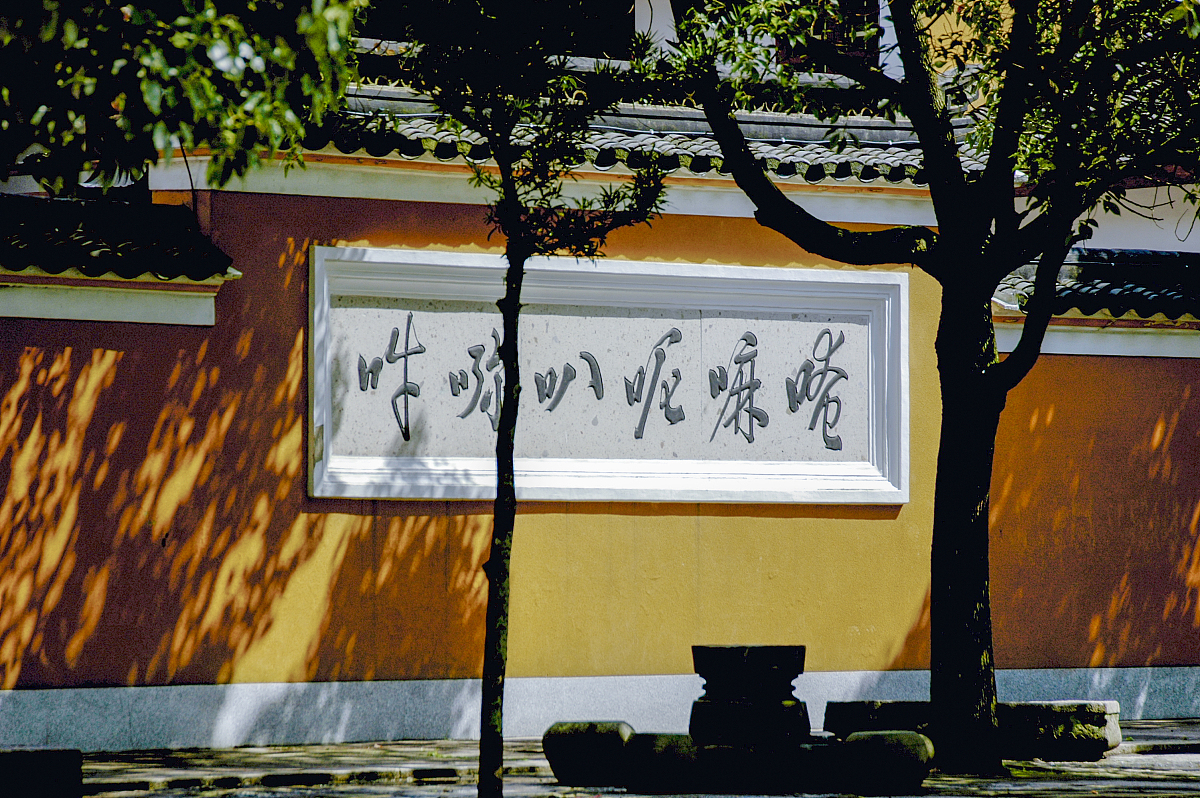 唵嘛呢叭吽